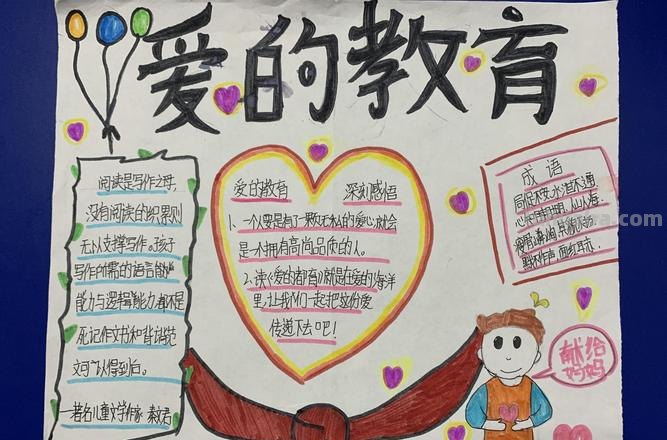 爱的教育
阅读是写作之母,
没有阅读的积累则
无以支撑写作。孩子
写作所需的语言能
能力与逻辑能力都不是
死记作文书和背诵范
文可以得到后。
一著名儿童文学作家 秦文君
爱的教育 深刻感悟
1、一个人要是有了一颗无私的爱心,就会
是一个拥有高尚品质的人。
2.读《爱的教育》就是在爱的海洋
里,让我们一起把这份爱
传递下去吧!
成语
局促不安、水泄不通、
人山人海、
默不作声、面红耳赤、
献给
妈妈